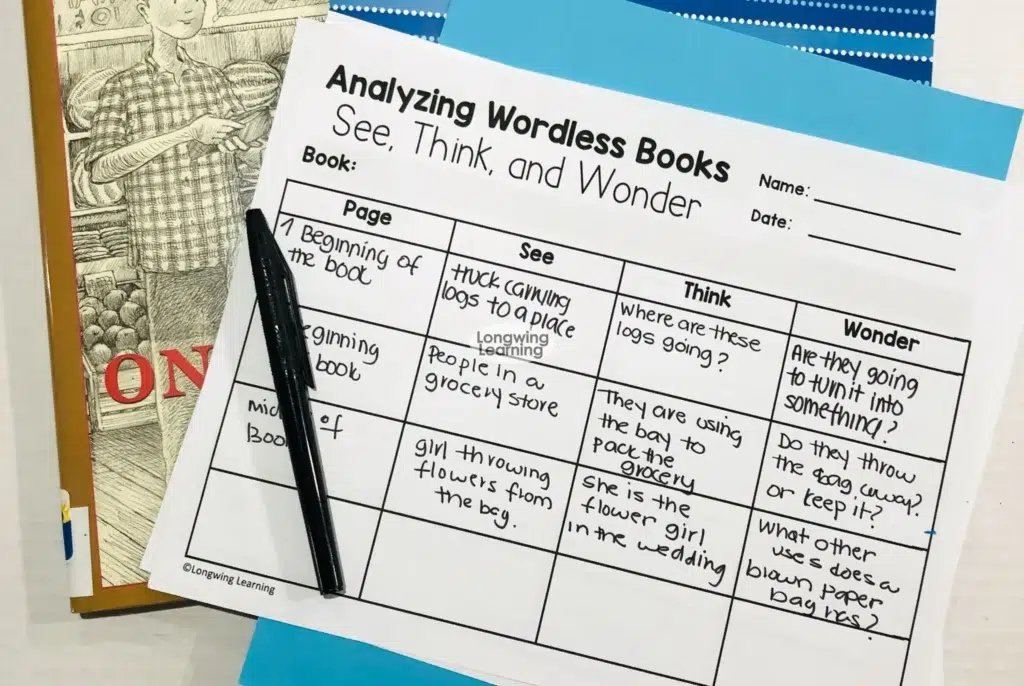 Analyzing Wordless Books
See, Think, and Wonder
Name:
Date:
Book:
Page
See
Think
Wonder
1 Beginning of
the book
truck carrying
logs to a place
where are these
logs going?
Are they going
to turn it into
something?
eginning
book
People in a
grocery store
They are using
the bay to
pack the
grocery
Do they throw
the bag away?
or keep it?
Mid of
Boo
girl throwing
flowers from
the bay.
She is the
flower girl
in the wedding
What other
uses does a
blown paper
bag has?
©Longwing Learning
Longwing
Learning
ON